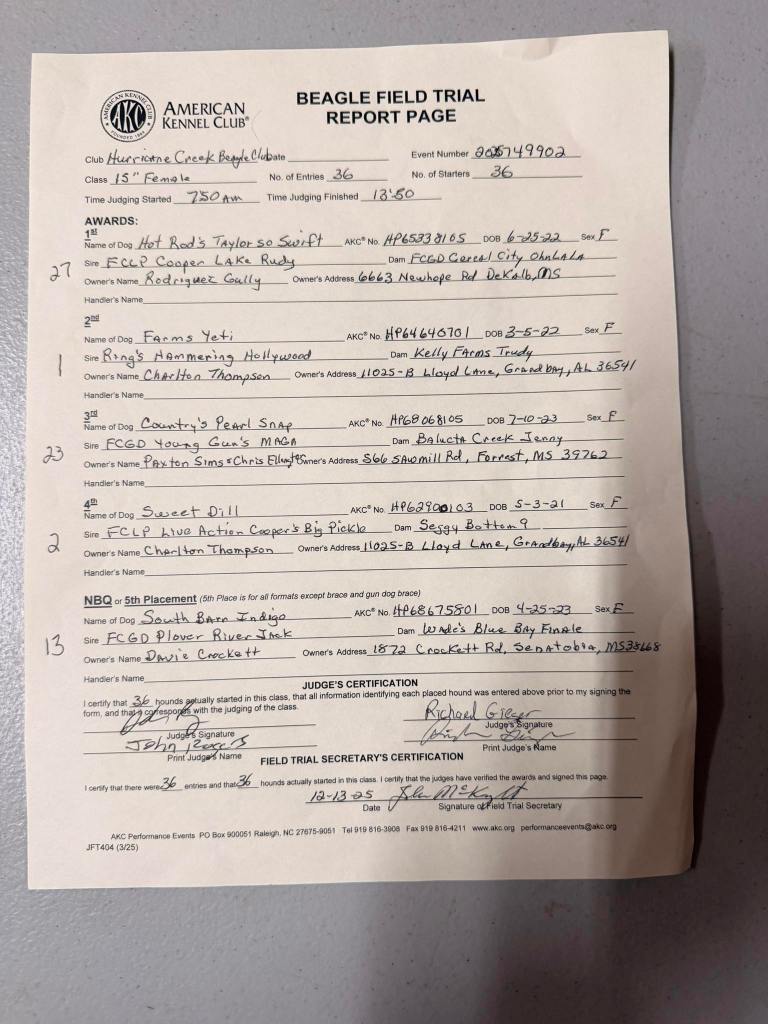 AMERICAN KENNEL CLUB FOUNDED 1884 AKC
AMERICAN KENNEL CLUB®
BEAGLE FIELD TRIAL
REPORT PAGE
Club Hurricane Creek Beagle Club Date Event Number 2025749902
Class 15" Female No. of Entries 36 No. of Starters 36
Time Judging Started 7:50 AM Time Judging Finished 13:50
AWARDS:
1st
Name of Dog Hot Rod's Taylor so Swift AKC® No. HP65338105 DOB 6-25-22 Sex F
27 Sire FCLP Cooper LAKe Rudy Dam FCGD Cereal City OhhLALA
Owner's Name Rodriguez Gully Owner's Address 6663 Newhope Rd DeKalb, MS
Handler's Name
2nd
Name of Dog Farms Yeti AKC® No. HP64640701 DOB 3-5-22 Sex F
1 Sire Ring's Hammering Hollywood Dam Kelly Farms Trudy
Owner's Name Charlton Thompson Owner's Address 11025-B Lloyd Lane, Grandbay, AL 36541
Handler's Name
3rd
Name of Dog Country's Pearl Snap AKC® No. HP68068105 DOB 7-10-23 Sex F
23 Sire FCGD Young Gun's MAGA Dam Balucta Creek Jenny
Owner's Name Paxton Sims & Chris Owner's Address 566 Sawmill Rd, Forrest, MS 39762
4th
Name of Dog Sweet Dill AKC® No. HP62900103 DOB 5-3-21 Sex F
2 Sire FCLP Live Action Cooper's Big Pickle Dam Seggy Bottom 9
Owner's Name Charlton Thompson Owner's Address 11025-B Lloyd Lane, Grandbay, AL 36541
Handler's Name
NBQ or 5th Placement (5th Place is for all formats except brace and gun dog brace)
Name of Dog South Barn Indigo AKC® No. HP68675801 DOB 4-25-23 Sex F
13 Sire FCGD Plover River Jack Dam Wade's Blue Bay Finale
Owner's Name Davie Crockett Owner's Address 1872 Crockett Rd, Senatobia, MS 38668
Handler's Name
JUDGE'S CERTIFICATION
I certify that 36 hounds actually started in this class, that all information identifying each placed hound was entered above prior to my signing the
form, and that it corresponds with the judging of the class.
Richard
Judge's Signature Judge's Signature
John Rogers
Print Judge's Name Print Judge's Name
FIELD TRIAL SECRETARY'S CERTIFICATION
I certify that there were 36 entries and that 36 hounds actually started in this class. I certify that the judges have verified the awards and signed this page.
12-13-25
Date Signature of Field Trial Secretary
AKC Performance Events PO Box 900051 Raleigh, NC 27675-9051 Tel 919 816-3908 Fax 919 816-4211 www.akc.org performanceevents@akc.org
JFT404 (3/25)